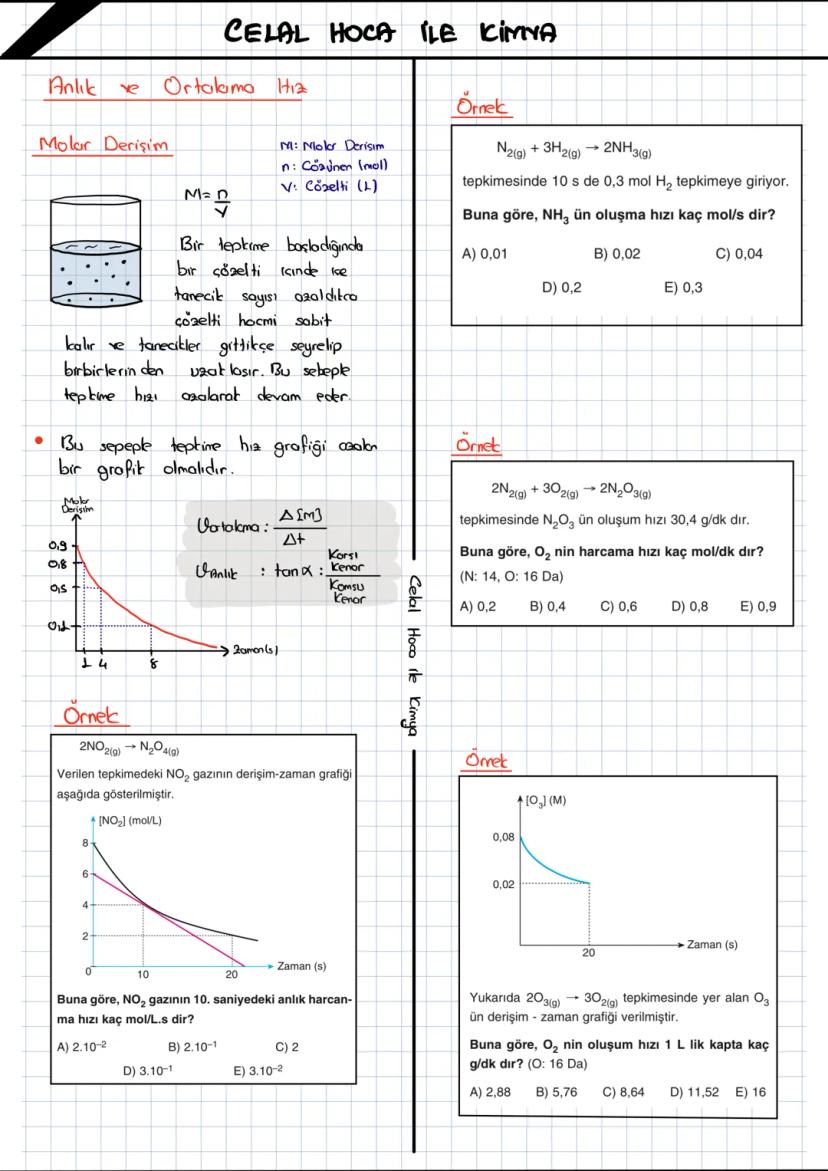 CELAL HOCA İLE KİMYA
Anlık ve Ortalama Hız
Molar Derişim
M: Molar Derişim
n: Çözünen (mol)
V: Çözelti (L)
M= n
V
Bir tepkime başladığında
bir çözelti içinde ise
tanecik sayısı azaldıkca
çözelti hacmi sabit
kalır ve tanecikler gittikçe seyrelip
birbirlerinden uzaklaşır. Bu sebeple
tepkime hızı azalarak devam eder.
• Bu sepeple tepkime hız grafiği azalan
bir grafik olmalıdır.
Molar
Derişim
0,9
0,8
0,5
0,1
1 4 8
Zaman(s)
Vortalama : Δ[M]
Δt
VAnlık : tanα : Karşı Kenar
Komşu Kenar
Örnek
2NO2(g) → N2O4(g)
Verilen tepkimedeki NO2 gazının derişim-zaman grafiği
aşağıda gösterilmiştir.
[NO2] (mol/L)
8
6
4
2
0 10 20
Zaman (s)
Buna göre, NO2 gazının 10. saniyedeki anlık harcan-
ma hızı kaç mol/L.s dir?
A) 2.10⁻² B) 2.10⁻¹ C) 2
D) 3.10⁻¹ E) 3.10⁻²
Celal Hoca ile Kimya
Örnek
N2(g) + 3H2(g) → 2NH3(g)
tepkimesinde 10 s de 0,3 mol H2 tepkimeye giriyor.
Buna göre, NH3 ün oluşma hızı kaç mol/s dir?
A) 0,01 B) 0,02 C) 0,04
D) 0,2 E) 0,3
Örnek
2N2(g) + 3O2(g) → 2N2O3(g)
tepkimesinde N2O3 ün oluşum hızı 30,4 g/dk dır.
Buna göre, O2 nin harcama hızı kaç mol/dk dır?
(N: 14, O: 16 Da)
A) 0,2 B) 0,4 C) 0,6 D) 0,8 E) 0,9
Örnek
[O3] (M)
0,08
0,02
20
Zaman (s)
Yukarıda 2O3(g) → 3O2(g) tepkimesinde yer alan O3
ün derişim - zaman grafiği verilmiştir.
Buna göre, O2 nin oluşum hızı 1 L lik kapta kaç
g/dk dır? (O: 16 Da)
A) 2,88 B) 5,76 C) 8,64 D) 11,52 E) 16